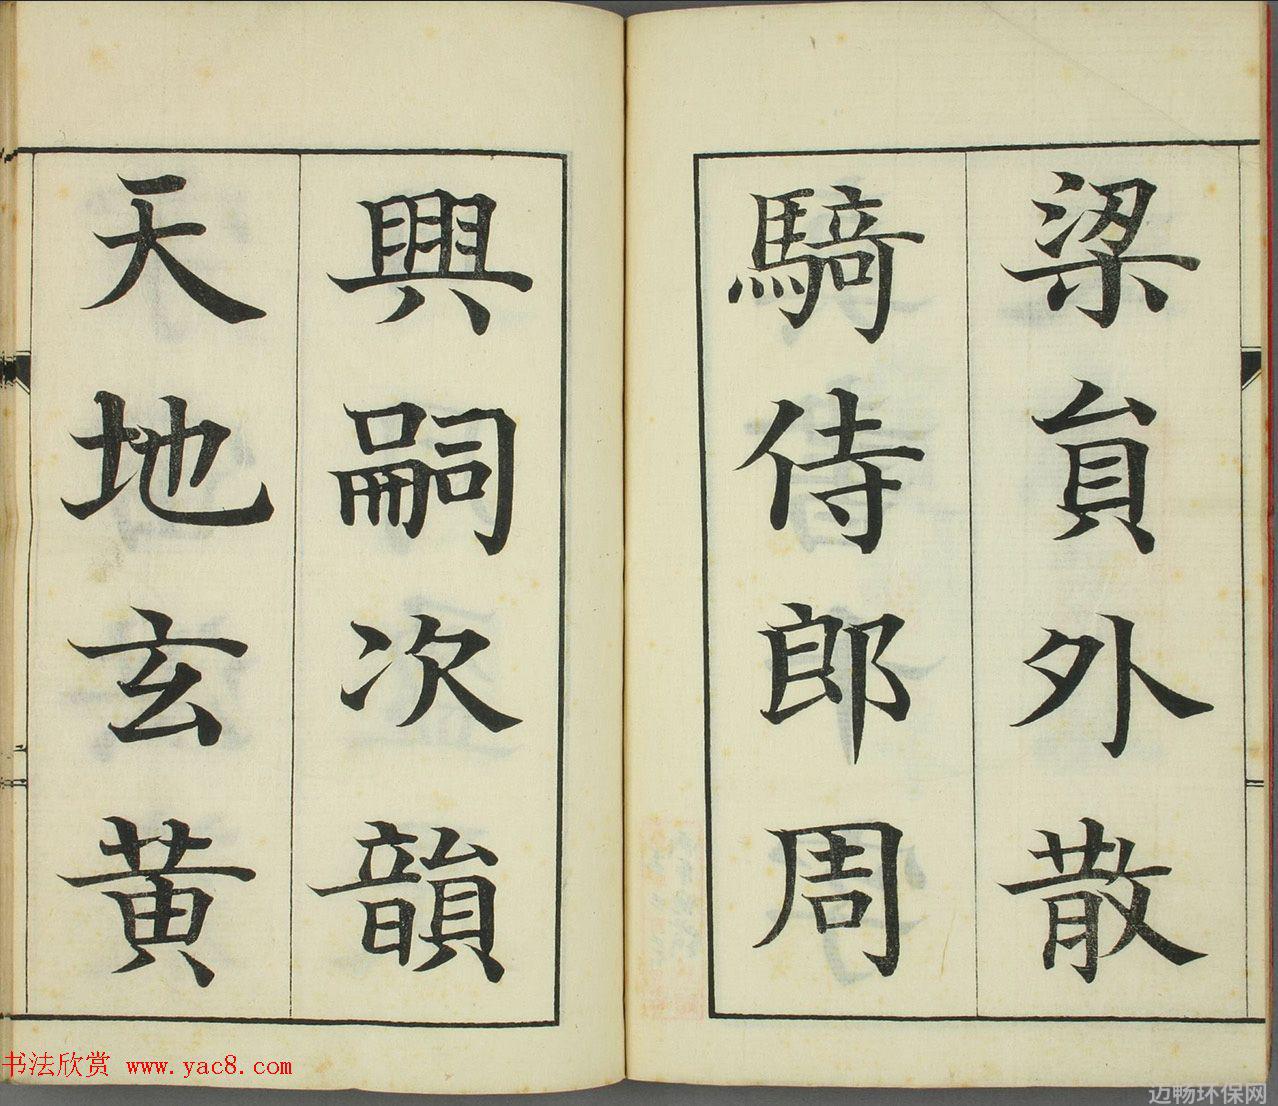 梁員外散
騎侍郎周
興嗣次韻
天地玄黃
书法欣赏 www.yac8.com
迈畅环保网